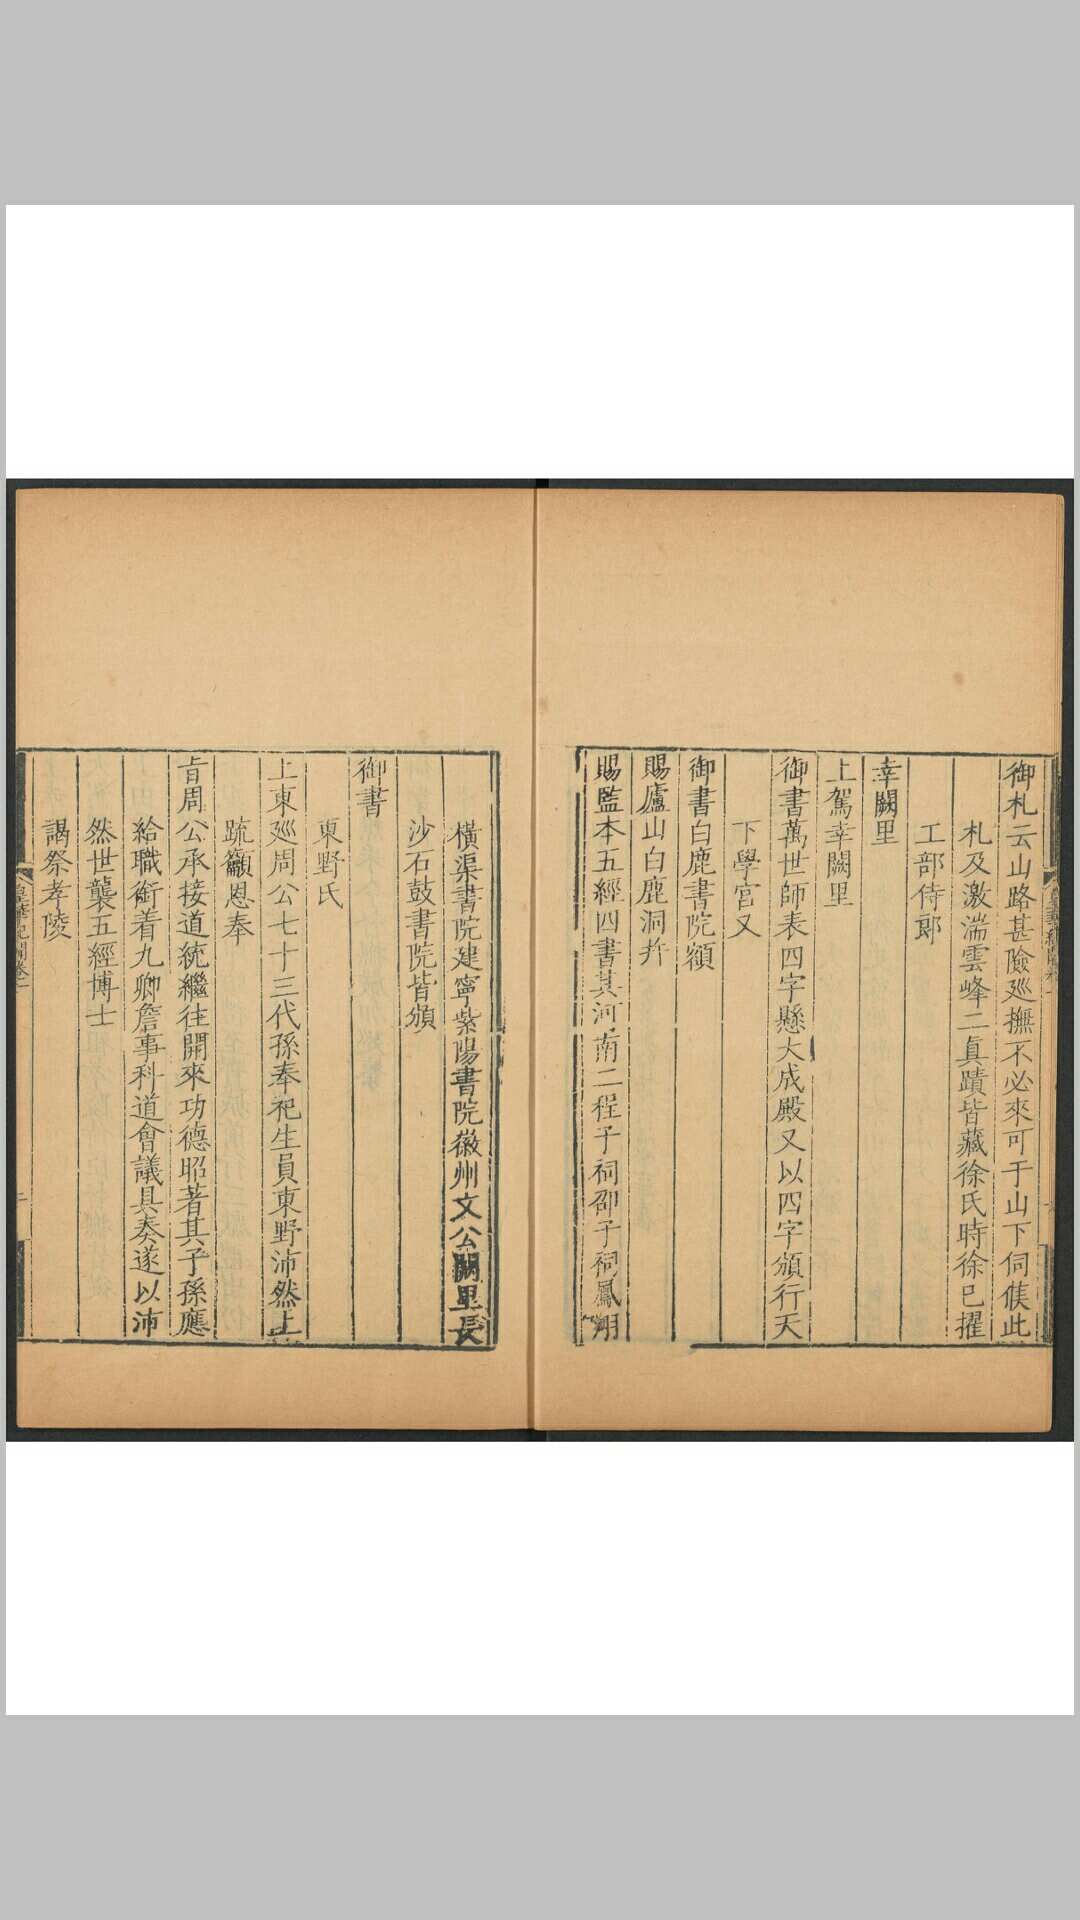 御札云山路甚險廵撫不必來可于山下伺候此
札及激湍雲峰二眞蹟皆藏徐氏時徐已擢
工部侍郎
幸闕里
上駕幸闕里
御書萬世師表四字懸大成殿又以四字頒行天
下學宮又
御書白鹿書院額
賜廬山白鹿洞幷
賜監本五經四書其河南二程子祠邵子祠鳳翔
橫渠書院建寧紫陽書院徽州文公闕里長
沙石鼓書院皆頒
御書
東野氏
上東廵周公七十三代孫奉祀生員東野沛然上
疏籲恩奉
旨周公承接道統繼往開來功德昭著其子孫應
給職銜着九卿詹事科道會議具奏遂以沛
然世襲五經博士
謁祭孝陵